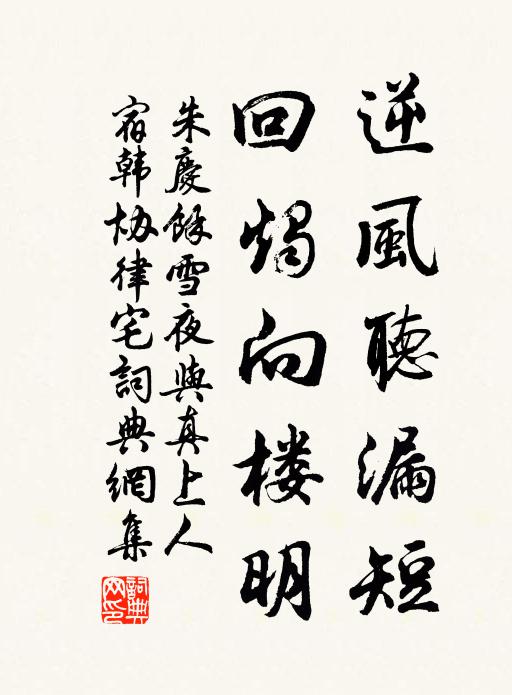 逆風聽漏短
回燭向楼明
朱慶餘雪夜與真上人
宿韩协律宅詞典網集
詞典網印